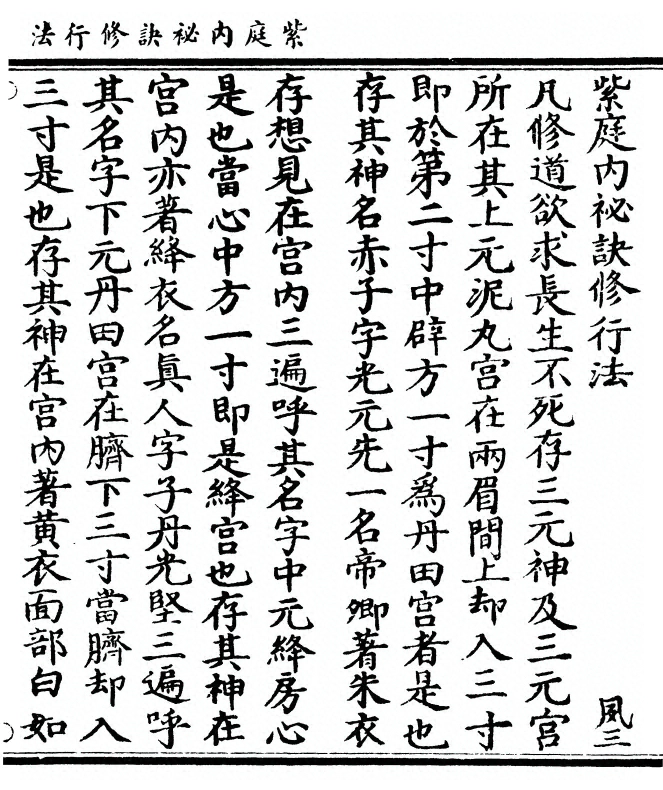 紫庭内祕訣修行法
紫庭内祕訣修行法 夙三
凡修道欲求長生不死存三元神及三元宮
所在其上元泥丸宮在兩眉間上却入三寸
即於第二寸中辟方一寸爲丹田宮者是也
存其神名赤子字光元先一名帝卿著朱衣
存想見在宮内三遍呼其名字中元絳房心
是也當心中方一寸即是絳宮也存其神在
宮内亦著絳衣名眞人字子丹光堅三遍呼
其名字下元丹田宮在臍下三寸當臍却入
三寸是也存其神在宮内著黄衣面部白如